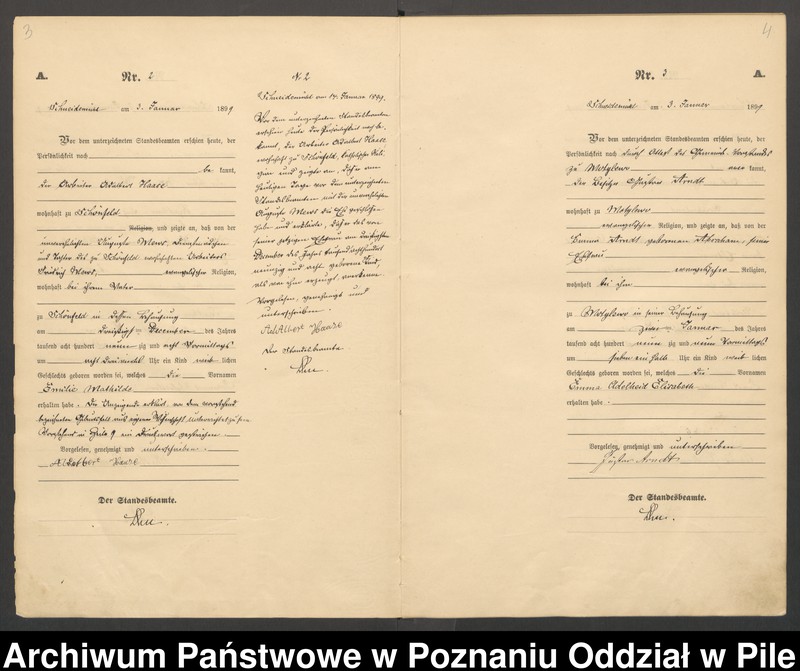 3
A.
Nr. 2
Schneidemühl am 3. Januar 1899
Vor dem unterzeichneten Standesbeamten erschien heute, der
Persönlichkeit nach
be kannt,
der Arbeiter Adalbert Haase
wohnhaft zu Schönfeld
Religion, und zeigte an, daß von der
unverehelichten Auguste Mews, Dienstmädchen
und Tochter des zu Schönfeld wohnhaften Arbeiters
Mews, evangelischer Religion,
wohnhaft bei ihrem Vater
zu Schönfeld in dessen Behausung
am dreißigsten Dezember des Jahres
tausend acht hundert neunzig und acht Vormittags
um acht dreiviertel Uhr ein Kind weiblichen
Geschlechts geboren worden sei, welches die Vornamen
Emilie Mathilde
erhalten habe. Der Anzeigende erklärt, von dem vorstehend
bezeichneten Geburtsfall aus eigener Wissenschaft unterrichtet zu sein.
Vorstehend in Zeile 9 ein Druckwort gestrichen
Vorgelesen, genehmigt und unterschrieben.
Adalbert Haase
Der Standesbeamte.
N. 2
Schneidemühl am 14. Januar 1899.
Vor dem unterzeichneten Standesbeamten
erschien heute, der Persönlichkeit nach be-
kannt, der Arbeiter Adalbert Haase
wohnhaft zu Schönfeld, katholischer Reli-
gion und zeigte an, daß er am
heutigen Tage vor dem unterzeichneten
Standesbeamten mit der unverehelichten
Auguste Mews die Ehe geschlossen
habe und erklärte, daß er das von
seiner jetzigen Ehefrau am dreißigsten
Dezember des Jahres tausend achthundert
neunzig und acht geborene Kind,
als von ihm erzeugt, anerkenne.
Vorgelesen, genehmigt und
unterschrieben.
Adalbert Haase
Der Standesbeamte
4
Nr. 3
A.
Schneidemühl am 3. Januar 1899
Vor dem unterzeichneten Standesbeamten erschien heute, der
Persönlichkeit nach durch Attest des Gemeinde Vorstandes
zu Motylewo aner kannt,
der Besitzer Gustav Arndt
wohnhaft zu Motylewo
evangelischer Religion, und zeigte an, daß von der
Emma Arndt geborenen Abraham, seiner
Ehefrau
evangelischer Religion,
wohnhaft bei ihm
zu Motylewo in seiner Behausung
am zweiten Januar des Jahres
tausend acht hundert neun zig und neun Vormittags
um sieben ein halb Uhr ein Kind weib lichen
Geschlechts geboren worden sei, welches die Vornamen
Emma Adelheid Elisabeth
erhalten habe.
Vorgelesen, genehmigt und unterschrieben
Gustav Arndt
Der Standesbeamte.
Archiwum Państwowe w Poznaniu Oddział w Pile